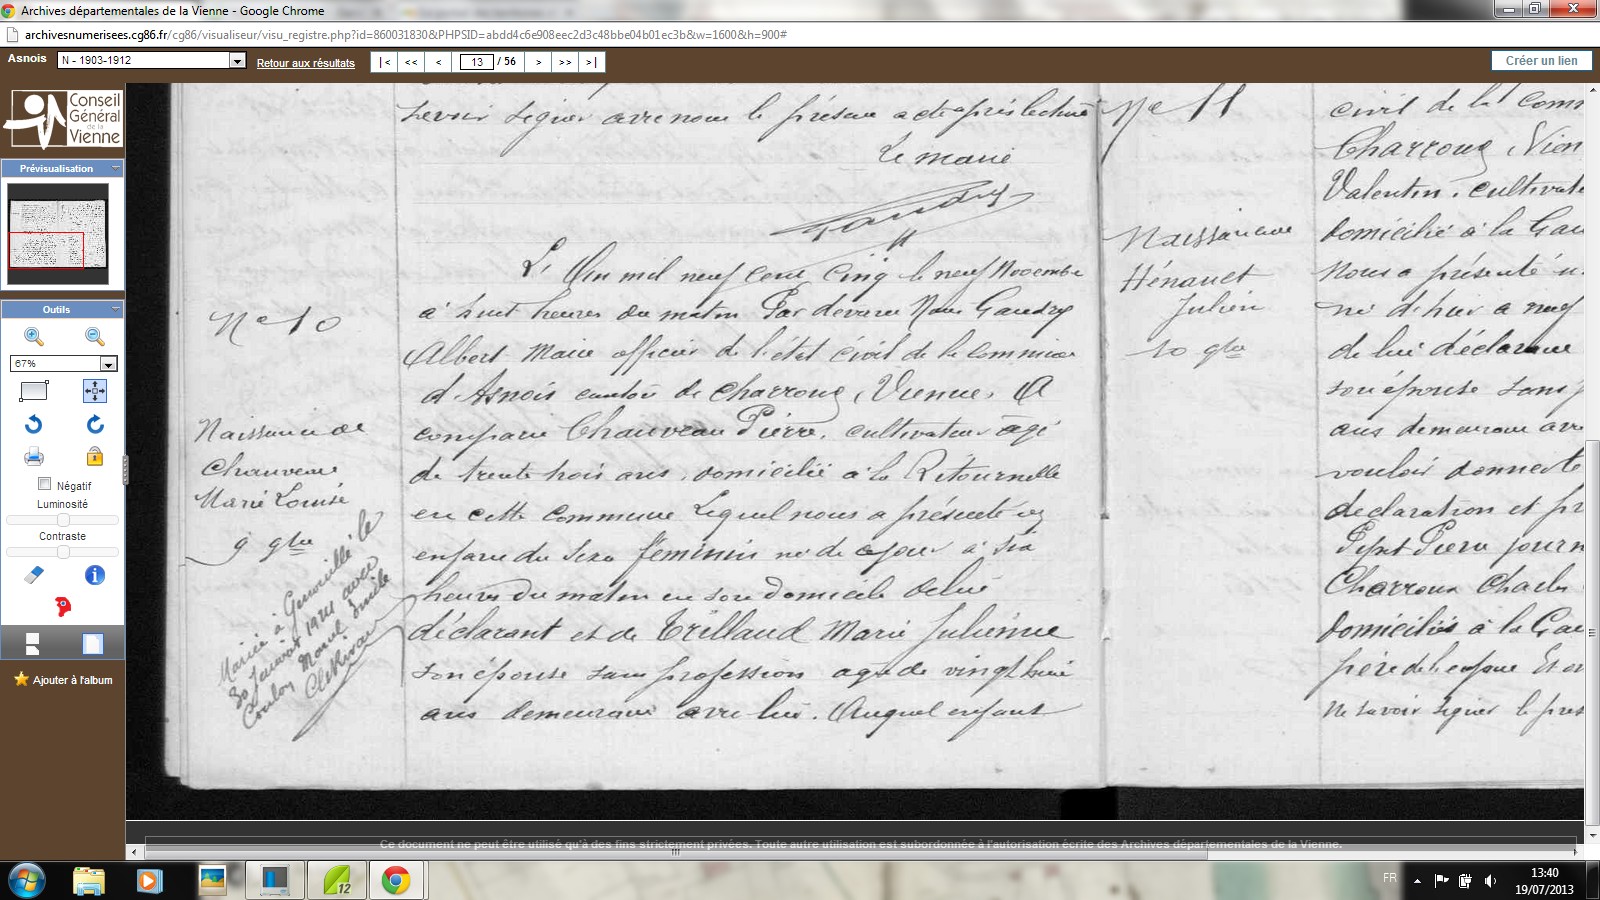 Archives départementales de la Vienne - Google Chrome
archivesnumerisees.cg86.fr/cg86/visualiseur/visu_registre.php?id=860031830&PHPSID=abdd4c6e908eec2d3c48bbe04b01ec3b&w=1600&h=900#
Asnois N - 1903-1912 Retour aux résultats |< << < 13 / 56 > >> >| Créer un lien
Conseil
Général
de la
Vienne
Prévisualisation
Outils
67%
Négatif
Luminosité
Contraste
Ajouter à l'album
savoir signer avec nous le présent acte après lecture
Le maire
Gaudry
N° 10
Naissance de
Chauveau
Marie Louise
9 9bre
Mariée à Genouillé le
30 janvier 1924 avec
Coulon Marcel Emile
L'An mil neuf cent cinq le neuf Novembre
à huit heures du matin Par devant Nous Gaudry
Albert Maire officier de l'état civil de la commune
d'Asnois canton de Charroux, Vienne, A
comparu Chauveau Pierre, cultivateur âgé
de trente trois ans, domicilié à la Rétournelle
en cette commune Lequel nous a présenté un
enfant du sexe féminin né de ce jour à six
heures du matin en son domicile de lui
déclarant et de Trillaud Marie Julienne
son épouse sans profession agée de vingt huit
ans demeurant avec lui. Auquel enfant
N° 11
Naissance
Hénault
Julien
10 9bre
civil de la Comm
Charroux, Vien
Valentin, cultivate
domicilié à la Gau
Nous a présenté u
né d'hier à neuf
de lui déclarant
son épouse sans p
ans demeurant ave
vouloir donner le
déclaration et pr
Pierre journ
Charroux Charles
domiciliés à la Gau
père de l'enfant Et on
ne savoir signer le pres
Ce document ne peut être utilisé qu'à des fins strictement privées. Toute autre utilisation est subordonnée à l'autorisation écrite des Archives départementales de la Vienne.
12
FR
13:40
19/07/2013